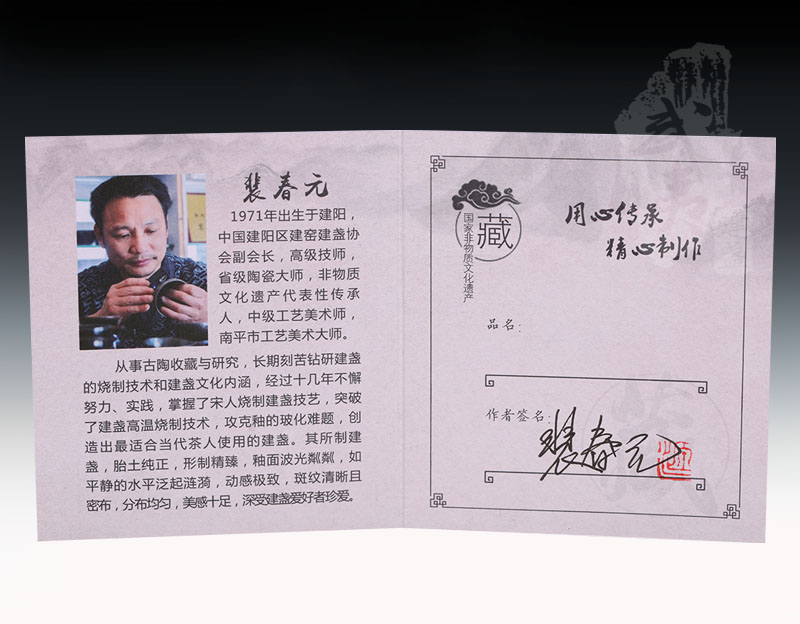 裴春元
1971年出生于建阳，
中国建阳区建窑建盏协
会副会长，高级技师，
省级陶瓷大师，非物质
文化遗产代表性传承
人，中级工艺美术师，
南平市工艺美术大师。
从事古陶收藏与研究，长期刻苦钻研建盏
的烧制技术和建盏文化内涵，经过十几年不懈
努力、实践，掌握了宋人烧制建盏技艺，突破
了建盏高温烧制技术，攻克釉的玻化难题，创
造出最适合当代茶人使用的建盏。其所制建
盏，胎土纯正，形制精臻，釉面波光粼粼，如
平静的水平泛起涟漪，动感极致，斑纹清晰且
密布，分布均匀，美感十足，深受建盏爱好者珍爱。
藏
国家非物质文化遗产
用心传承
精心制作
品名：
作者签名：
裴春元